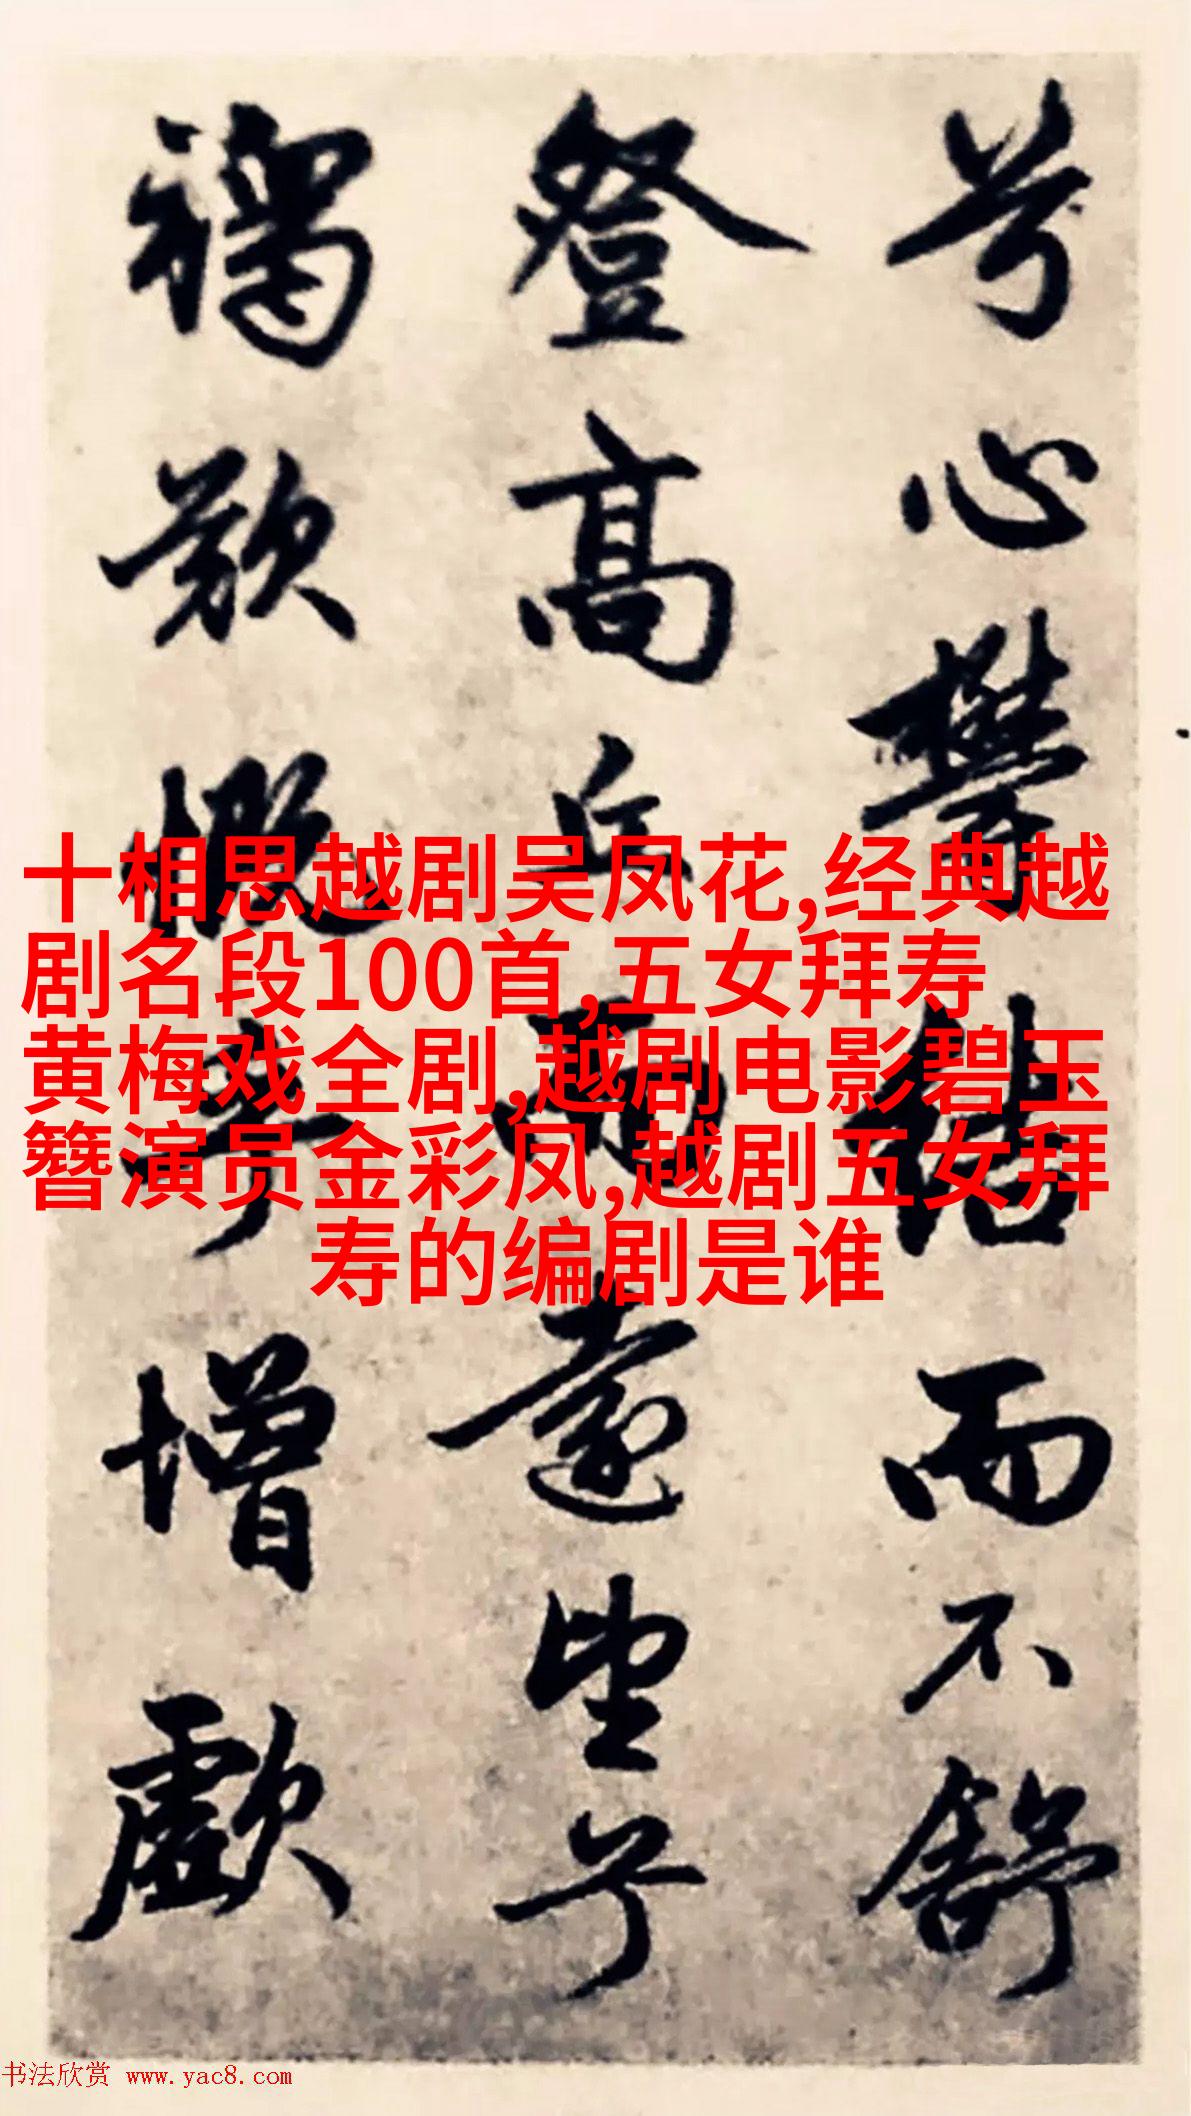 兮心鬱結而不舒
登高丘而遠望兮
慨兮增歔
十相思越剧吴凤花,经典越
剧名段100首,五女拜寿
黄梅戏全剧,越剧电影碧玉
簪演员金彩凤,越剧五女拜
寿的编剧是谁
书法欣赏 www.yac8.com